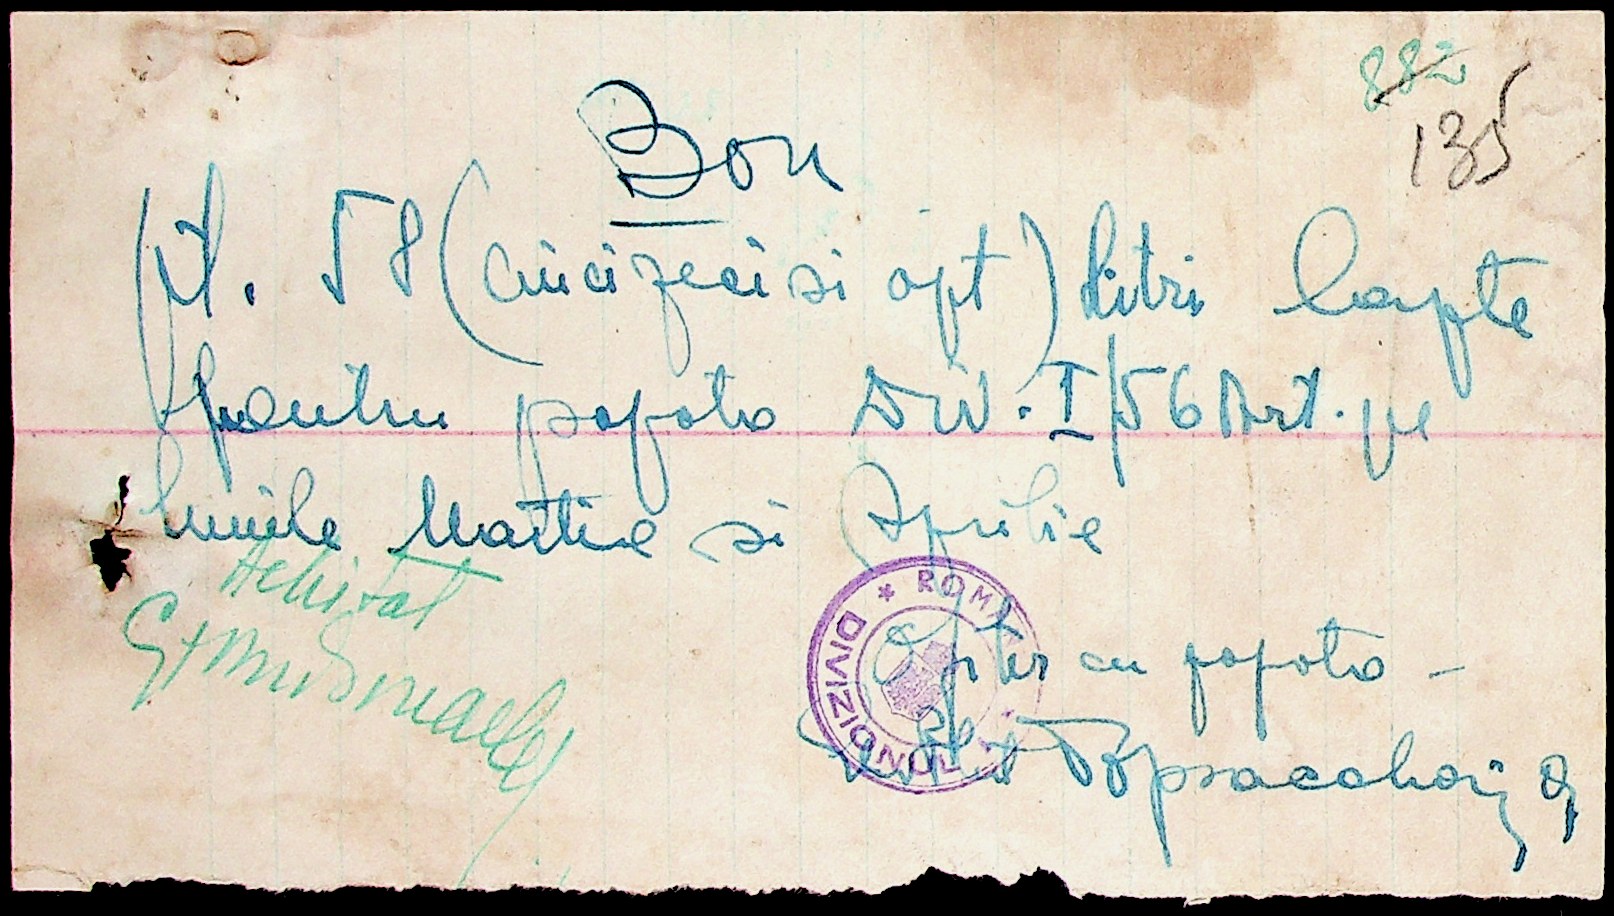 882
135
Bon
pt. 58 (cincizeci si opt) Litri lapte
pentru popota Div. I/56 Art. pe
lunile Martie si Aprilie
Achitat
* ROMA
DIVIZIONUL
Ofiter cu popota -